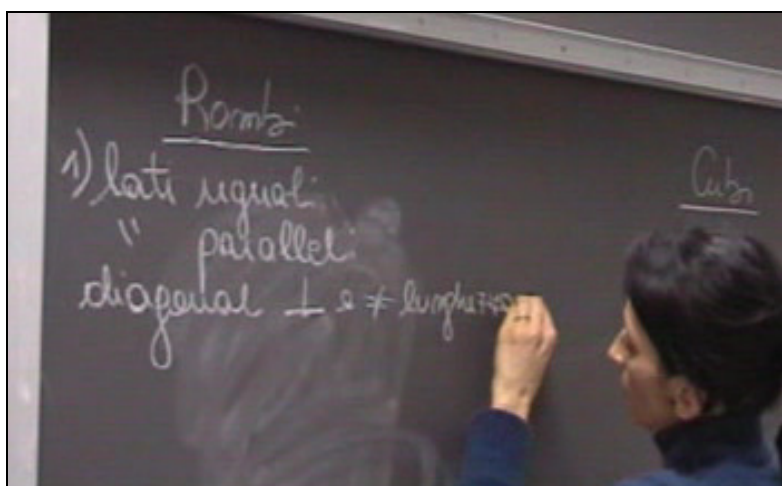 Rombi
1) lati uguali
" paralleli
diagonali ⊥ e ≠ lunghezza
Cubi